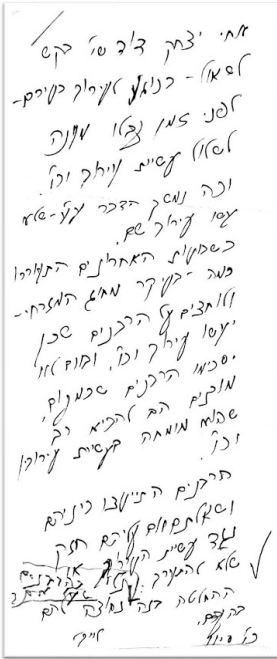 אחי יצחק דוד שי' בקש
לשאול - בנוגע לעירוב בעירם -
לפני זמן קבלו מענה
לשלול עשיית עירוב וכו'.
וכה נמשך הדבר עד - שלא
עשו עירוב שם.
בשבועות האחרונים התעוררו
כמה - בעיקר מחוג המזרחי -
ולוחצים על הרבנים שכן
יעשו עירוב וכו', ובאם לא
יסכימו הרבנים שבמקום,
מוכנים הם להביא רב
שהוא מומחה בעשיית עירובין
וכו'.
הרבנים התייעצו ביניהם
ושאלתם האם עליהם
נגד עשיית העירוב, או
שלא להתערב
ההחלטה בזה
בהקדם.
כל